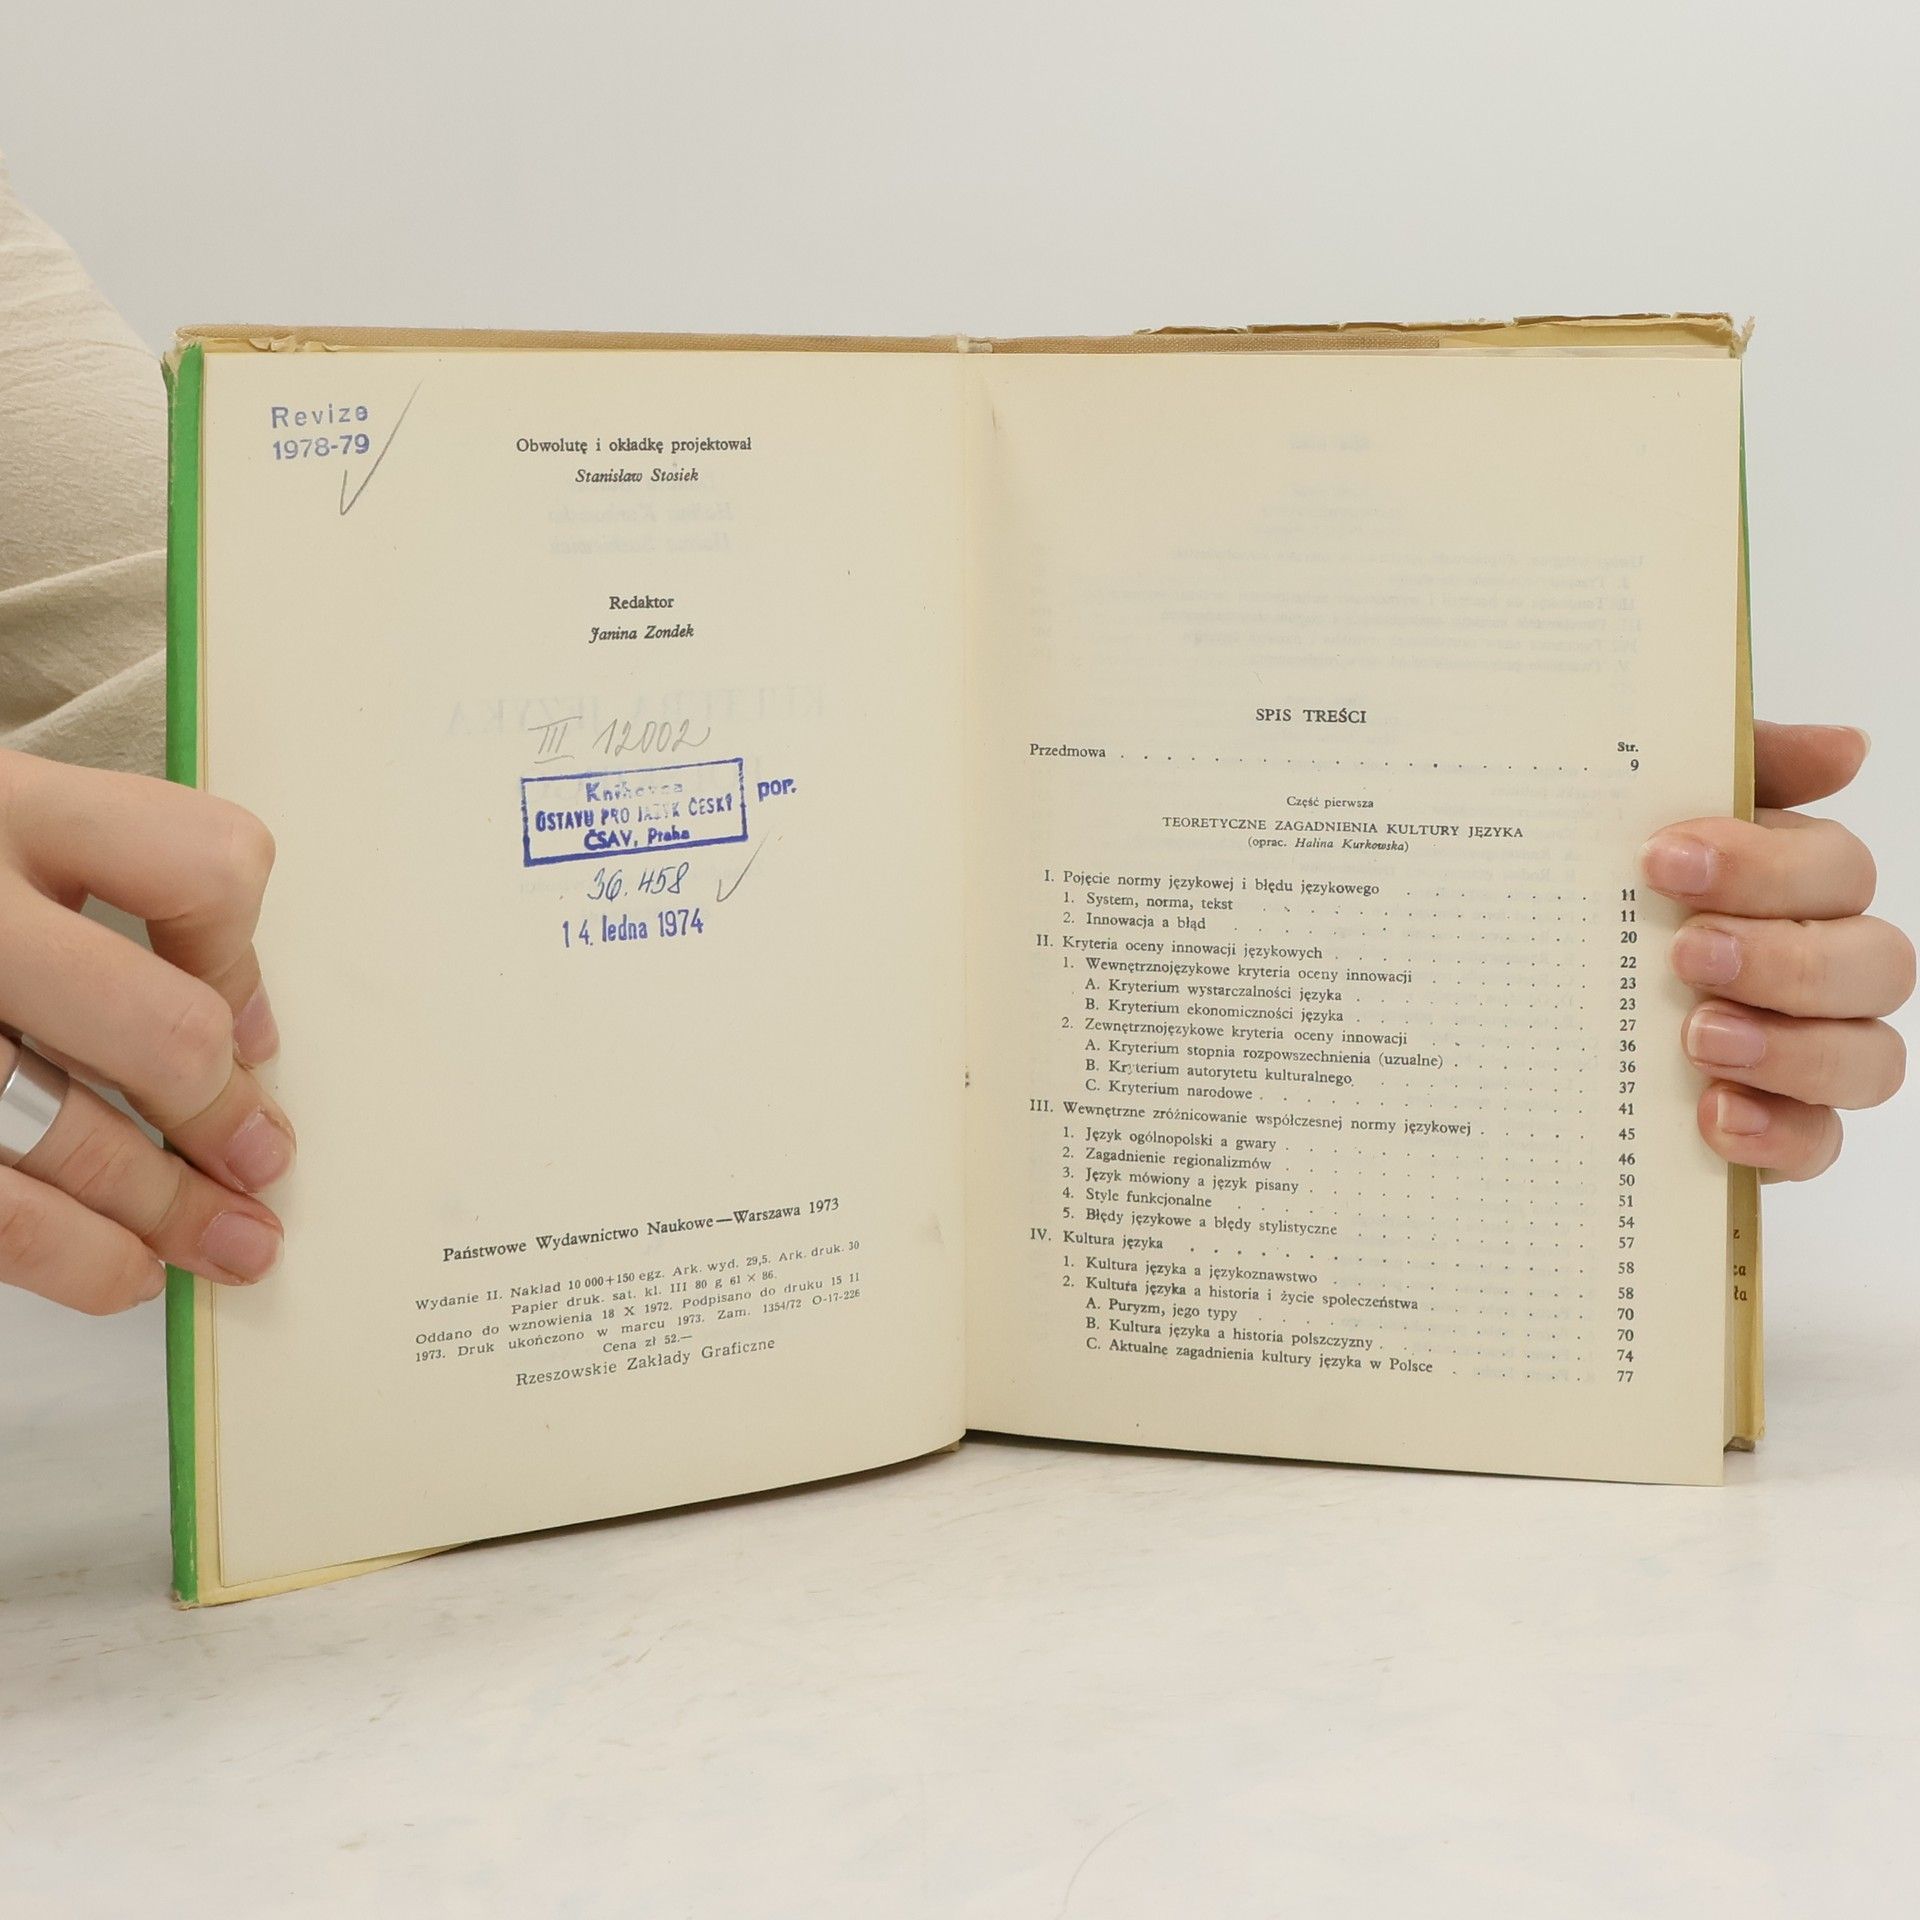 Revize
1978-79
Obwolutę i okładkę projektował
Stanisław Stosiek
Redaktor
Janina Zondek
III 12002
Knihovna
ÚSTAVU PRO JAZYK ČESKÝ
ČSAV, Praha
por.
36.458
14. ledna 1974
Państwowe Wydawnictwo Naukowe—Warszawa 1973
Wydanie II. Nakład 10 000+150 egz. Ark. wyd. 29,5. Ark. druk. 30
Papier druk. sat. kl. III 80 g 61 × 86.
Oddano do wznowienia 18 X 1972. Podpisano do druku 15 II
1973. Druk ukończono w marcu 1973. Zam. 1354/72 O-17-226
Cena zł 52.—
Rzeszowskie Zakłady Graficzne
SPIS TREŚCI
Str.
Przedmowa . . . . . . . . . . . . . . . . . 9
Część pierwsza
TEORETYCZNE ZAGADNIENIA KULTURY JĘZYKA
(oprac. Halina Kurkowska)
I. Pojęcie normy językowej i błędu językowego . . . . . . 11
1. System, norma, tekst . . . . . . . . . . 11
2. Innowacja a błąd . . . . . . . . . . . 20
II. Kryteria oceny innowacji językowych . . . . . . . . 22
1. Wewnętrznojęzykowe kryteria oceny innowacji . . . . . 23
A. Kryterium wystarczalności języka . . . . . . . 23
B. Kryterium ekonomiczności języka . . . . . . . 27
2. Zewnętrznojęzykowe kryteria oceny innowacji . . . . . 36
A. Kryterium stopnia rozpowszechnienia (uzualne) . . . . . 36
B. Kryterium autorytetu kulturalnego . . . . . . . 37
C. Kryterium narodowe . . . . . . . . . . 41
III. Wewnętrzne zróżnicowanie współczesnej normy językowej . . . . 45
1. Język ogólnopolski a gwary . . . . . . . . . 46
2. Zagadnienie regionalizmów . . . . . . . . . 50
3. Język mówiony a język pisany . . . . . . . . 51
4. Style funkcjonalne . . . . . . . . . . . 54
5. Błędy językowe a błędy stylistyczne . . . . . . . 57
IV. Kultura języka . . . . . . . . . . . . 58
1. Kultura języka a językoznawstwo . . . . . . . . 58
2. Kultura języka a historia i życie społeczeństwa . . . . . 70
A. Puryzm, jego typy . . . . . . . . . . 70
B. Kultura języka a historia polszczyzny . . . . . . 74
C. Aktualne zagadnienia kultury języka w Polsce . . . . . 77